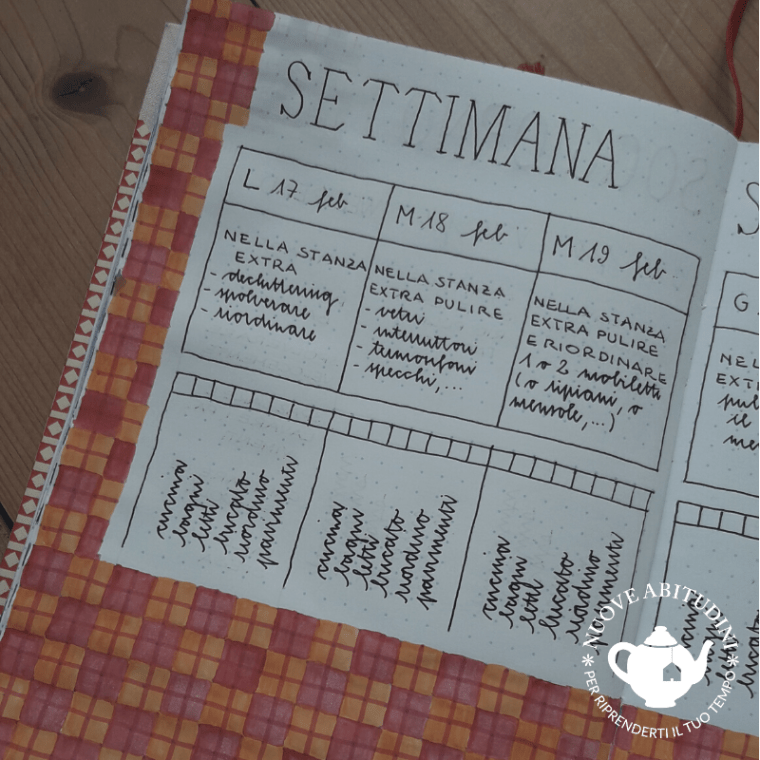 SETTIMANA
L 17 feb
NELLA STANZA
EXTRA
- decluttering
- spolverare
- riordinare
M 18 feb
NELLA STANZA
EXTRA PULIRE
- vetri
- interruttori
- termosifoni
- specchi, ...
M 19 feb
NELLA STANZA
EXTRA PULIRE
E RIORDINARE
1 o 2 mobiletti
(o ripiani, o
mensole, ...)
G
NEL
EXT
pul
il
me
cucina
bagni
letti
bucato
riordino
pavimenti
cucina
bagni
letti
bucato
riordino
pavimenti
cucina
bagni
letti
bucato
riordino
pavimenti
bucato
NUOVE ABITUDINI
PER RIPRENDERTI IL TUO TEMPO